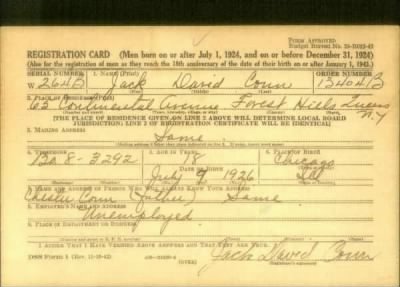 FORM APPROVED
REGISTRATION CARD (Men born on or after July 1, 1924, and on or before December 31, 1924)
(Also for the registration of men as they reach the 18th anniversary of the date of their birth on or after January 1, 1943.)
SERIAL NUMBER 1. NAME (Print) ORDER NUMBER
W 264B Jack David Conn 13404B
2. PLACE OF RESIDENCE (Print)
63 Continental Avenue Forest Hills Queens N.Y
[THE PLACE OF RESIDENCE GIVEN ON LINE 2 ABOVE WILL DETERMINE LOCAL BOARD
JURISDICTION; LINE 2 OF REGISTRATION CERTIFICATE WILL BE IDENTICAL]
3. MAILING ADDRESS
Same
4. TELEPHONE 5. AGE IN YEARS 6. PLACE OF BIRTH
8-3292 18 Chicago
DATE OF BIRTH
July 9 1926 Ill
7. NAME AND ADDRESS OF PERSON WHO WILL ALWAYS KNOW YOUR ADDRESS
Conn (father) Same
8. EMPLOYER'S NAME AND ADDRESS
Unemployed
9. PLACE OF EMPLOYMENT OR BUSINESS
I AFFIRM THAT I HAVE VERIFIED ABOVE ANSWERS AND THAT THEY ARE TRUE.
DSS Form 1 (OVER) Jack David Conn